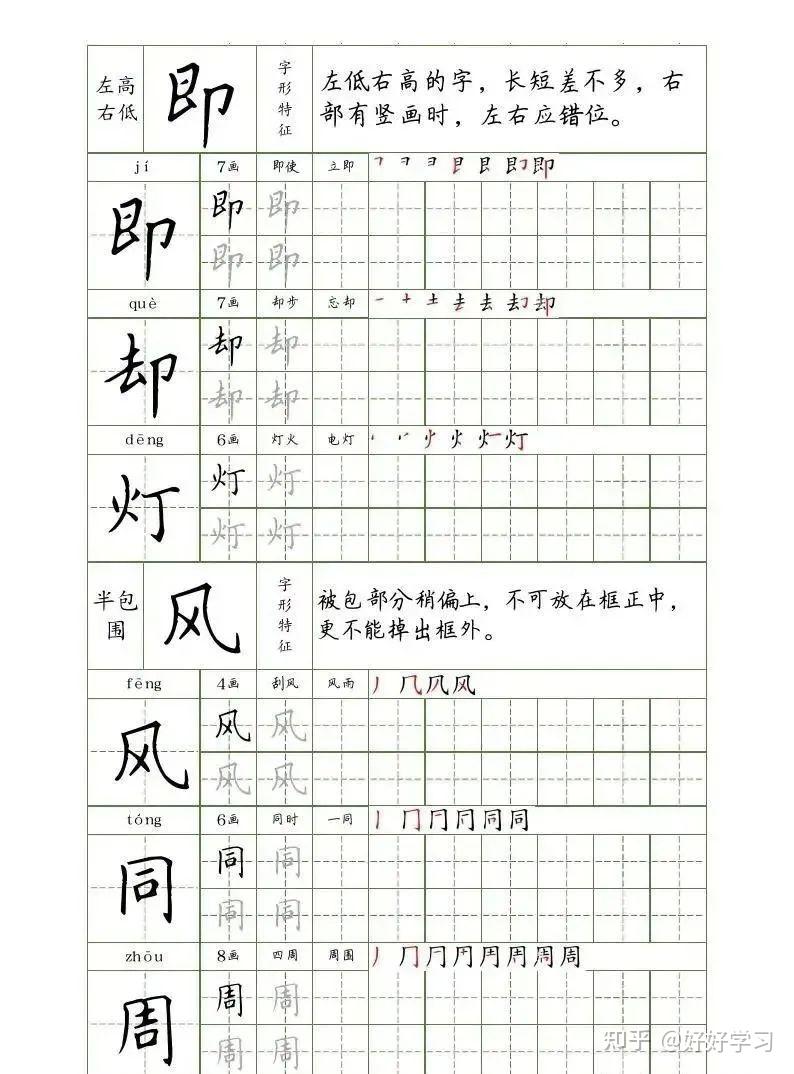 左高
右低
即
字形特征
左低右高的字，长短差不多，右
部有竖画时，左右应错位。
jí 7画 即使 立即
即 即 即
即 即
què 7画 却步 忘却
却 却 却
却 却
dēng 6画 灯火 电灯
灯 灯 灯
灯 灯
半包
围
风
字形特征
被包部分稍偏上，不可放在框正中，
更不能掉出框外。
fēng 4画 刮风 风雨
风 风 风
风 风
tóng 6画 同时 一同
同 同 同
同 同
zhōu 8画 四周 周围
周 周 周
周 周
知乎 @好好学习